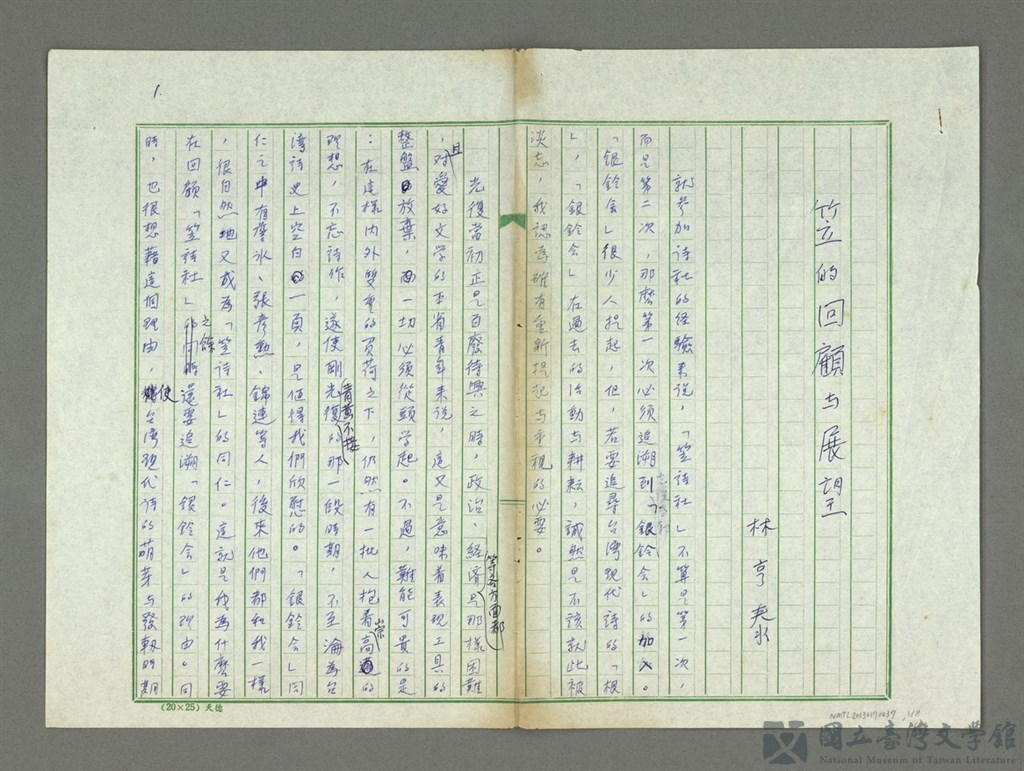 1.
笠的回顧与展望
林亨泰
就參加詩社的經驗来说，「笠詩社」不算是第一次，
而是第二次，那麽第一次必須追溯到「銀鈴会」的加入。
「銀鈴会」很少人提起，但，若要追尋台湾現代詩的「根
」，「銀鈴会」在過去的活動与耕耘，誠然是不該就此被
淡忘，我認為確有重新提起与重視的必要。
光復當初正是百廢待興之時，政治、經濟等各方面都是那樣困難
，且对愛好文学的本省青年来说，這又是意味着表現工具的
整盤放棄，一切必須從頭学起。不過，難能可貴的是
：在這樣内外双重的負荷之下，仍然有一批人抱着崇高的
理想，不忘詩作，遂使剛光復的青黃不接那一段時期，不至淪為台
湾詩史上空白一頁，是值得我們欣慰的。「銀鈴会」同
仁之中有詹冰、張彥勲、錦連等人，後来他們都和我一樣
，很自然地又成為「笠詩社」的同仁。這就是我為什麽要
在回顧「笠詩社」之餘還要追溯「銀鈴会」的理由。同
時，也很想藉這個理由，使台湾現代詩的萌芽与發軔時期
(20×25) 天德
NMTL20130191037
國立臺灣文學館
National Museum of Taiwan Literature